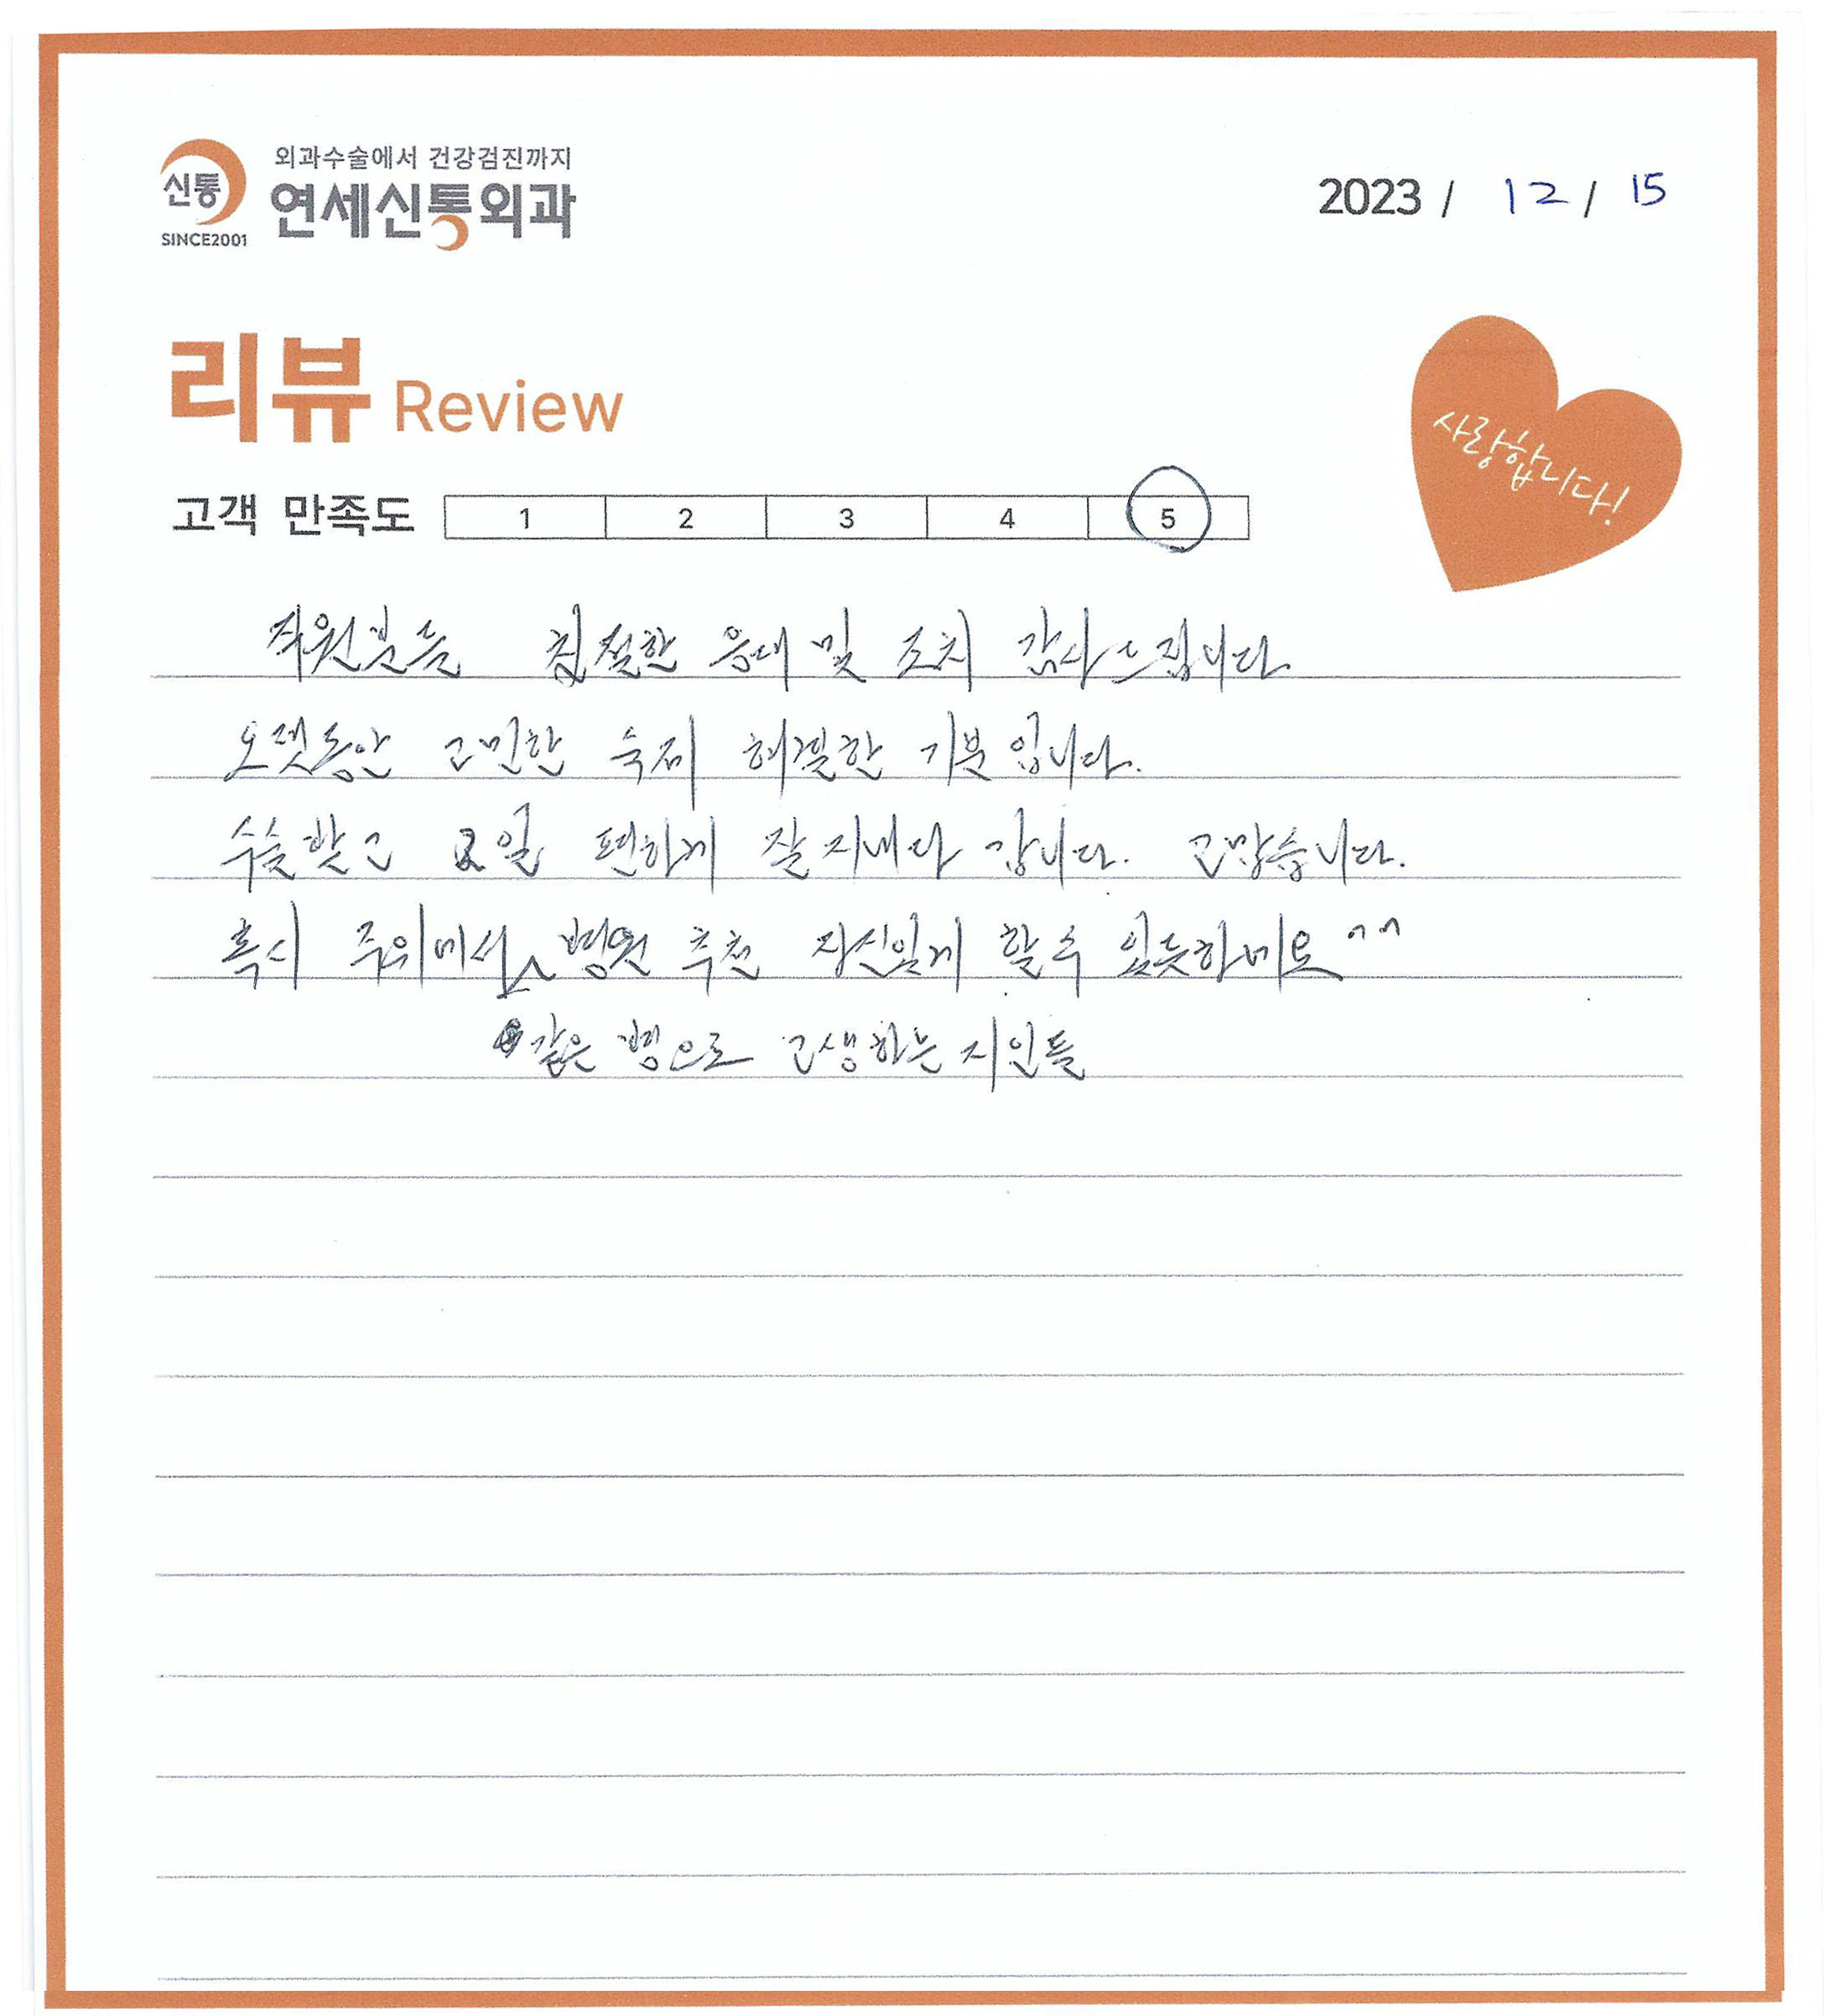 외과수술에서 건강검진까지
신통
연세신통외과
SINCE2001
2023 / 12 / 15
리뷰 Review
사랑합니다!
고객 만족도 1 2 3 4 5
직원분들 친절한 응대 및 조치 감사드립니다
오랫동안 고민한 숙제 해결한 기분입니다.
수술받고 2일 편하게 잘 지내다 갑니다. 고맙습니다.
혹시 주위에서 병원 추천 자신있게 할수 있듯하네요^^
같은 병으로 고생하는 지인들